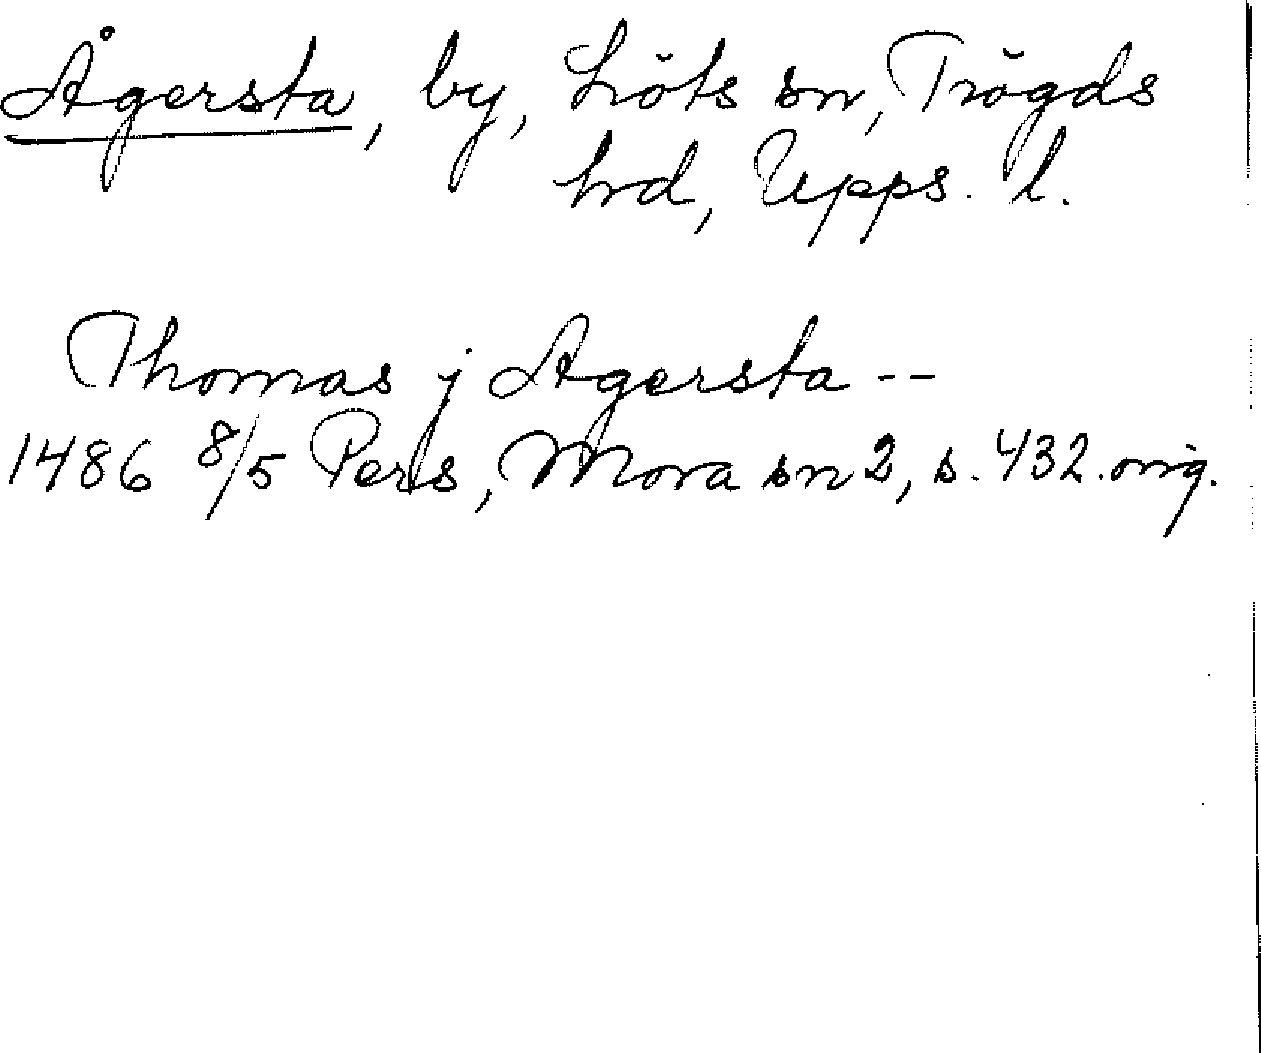 Ågersta, by, Löts sn, Trögds
hrd, Upps. l.
Thomas j Agersta --
1486 8/5 Pers, Mora sn 2, s. 432. orig.